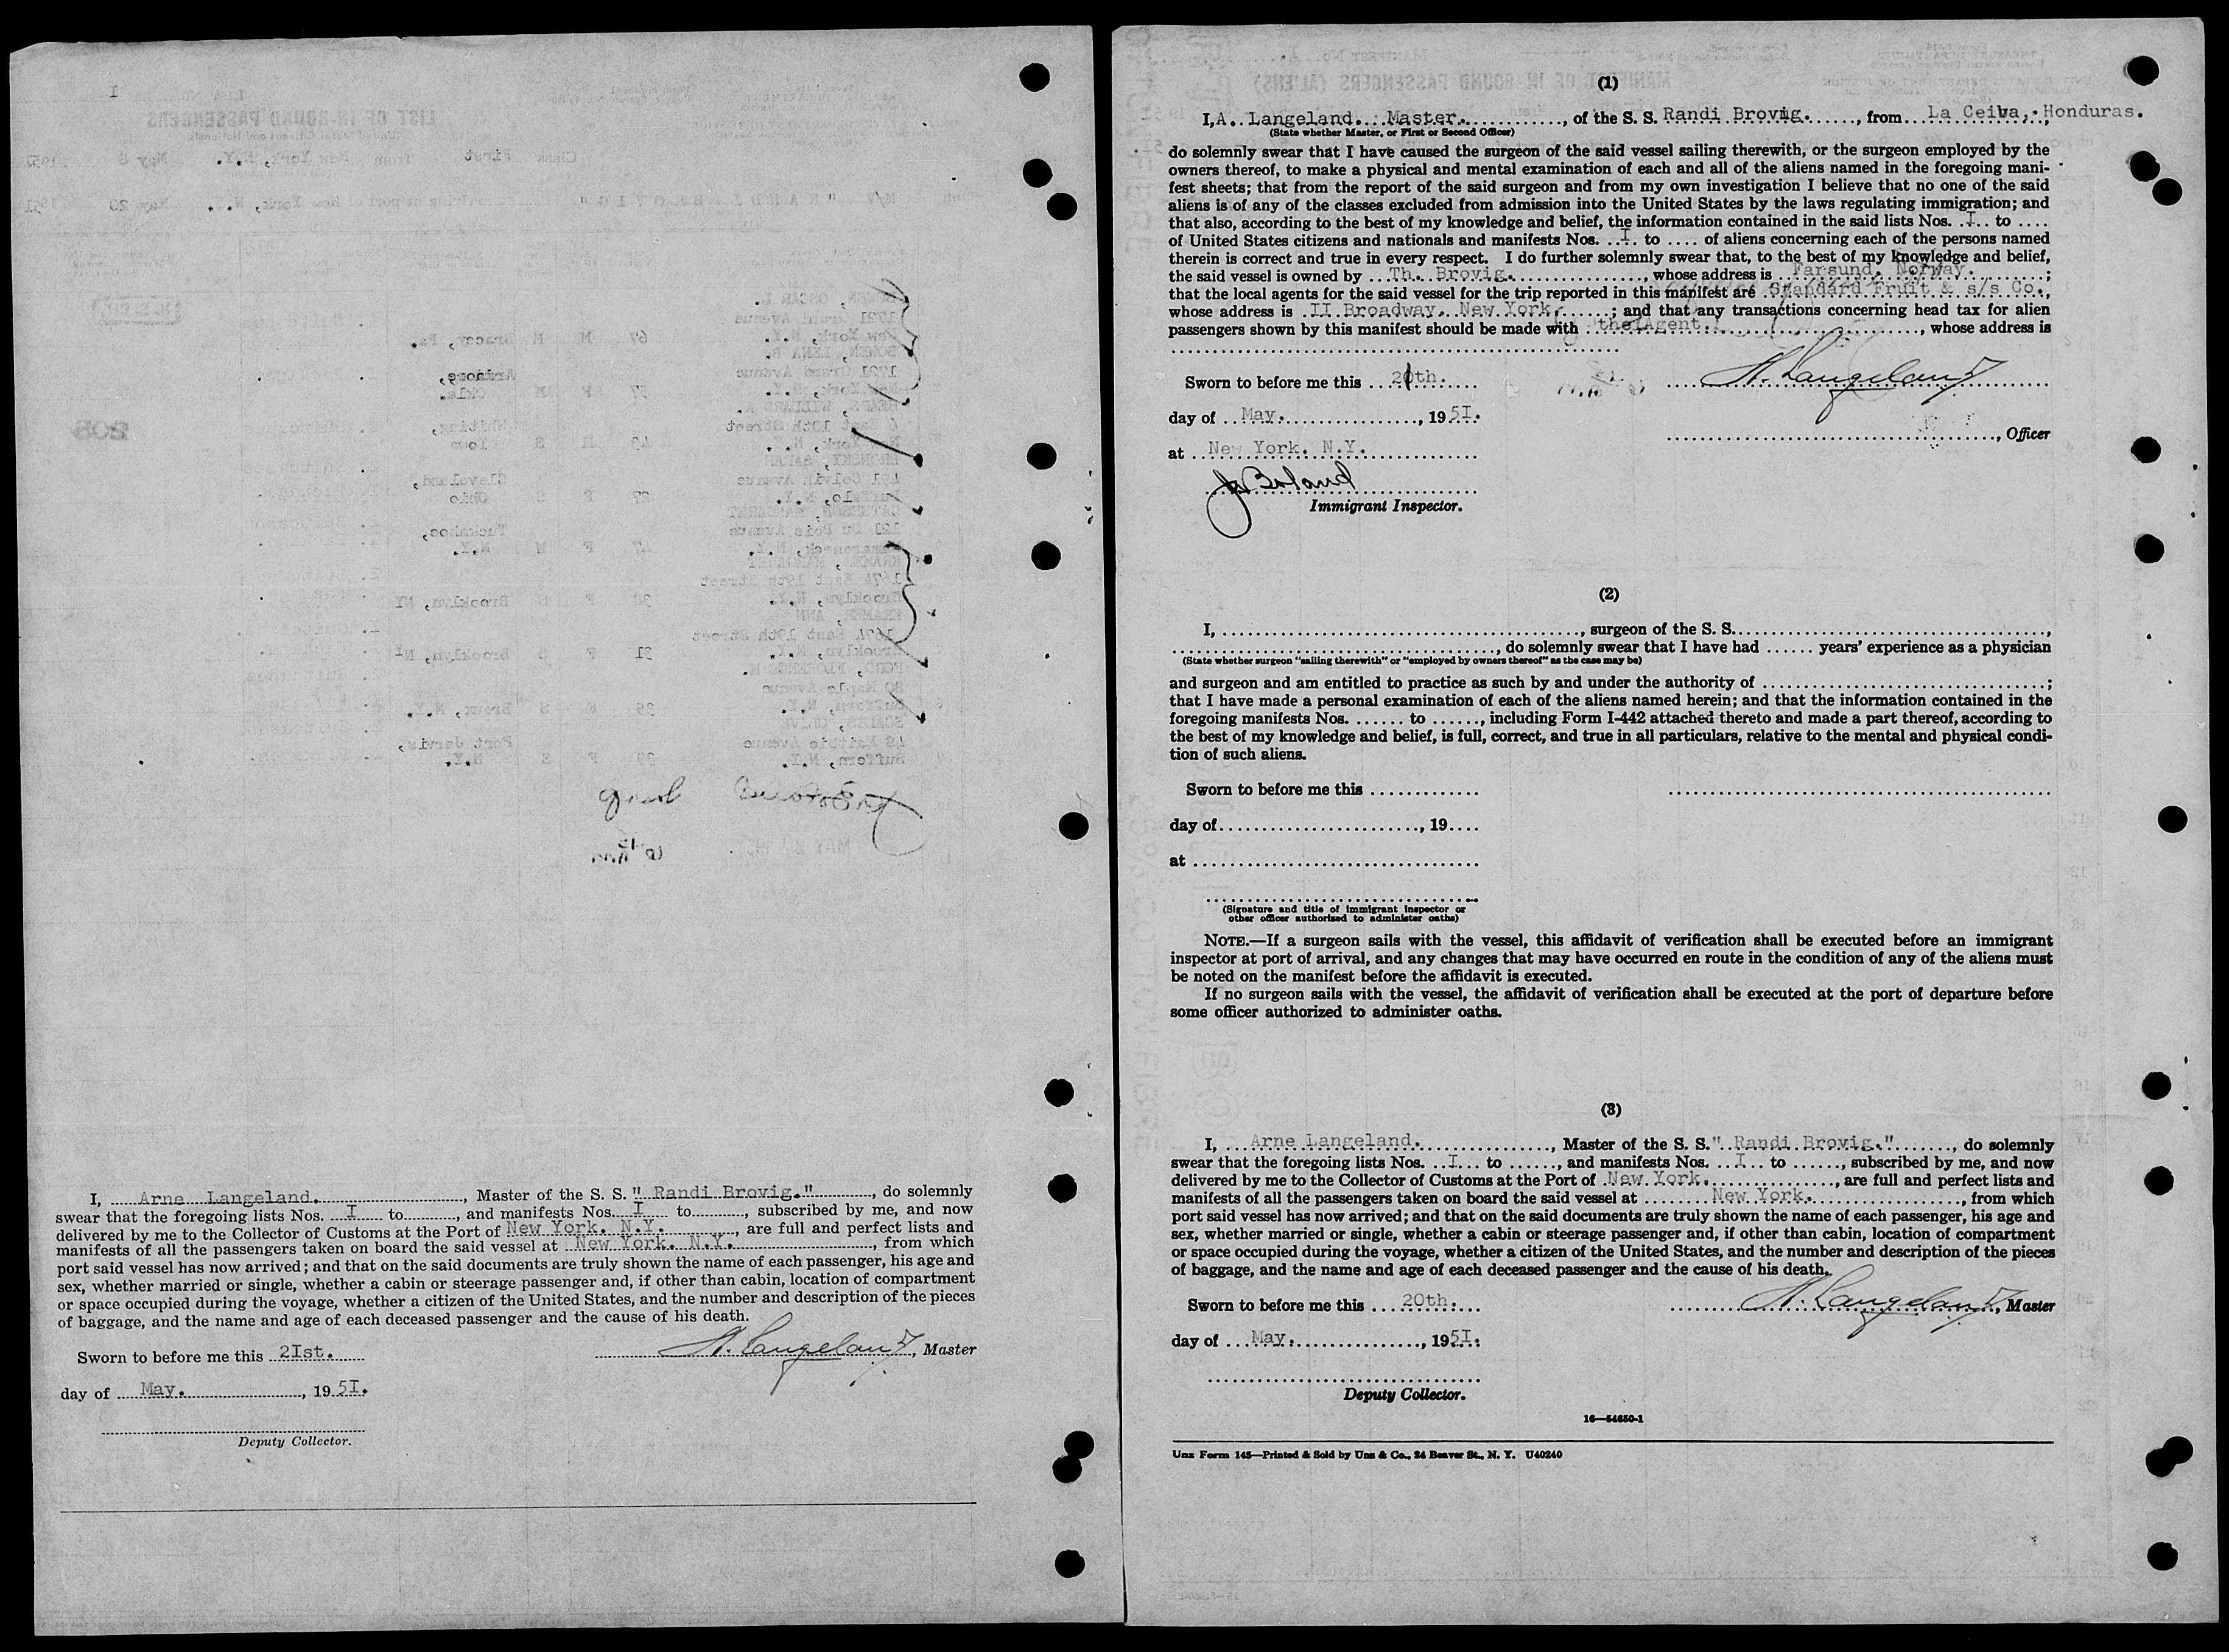 I, Arne Langeland. , Master of the S. S. " Randi Brovig." , do solemnly
swear that the foregoing lists Nos. I to , and manifests Nos. I to , subscribed by me, and now
delivered by me to the Collector of Customs at the Port of New York. N.Y. , are full and perfect lists and
manifests of all the passengers taken on board the said vessel at New York. N.Y. , from which
port said vessel has now arrived; and that on the said documents are truly shown the name of each passenger, his age and
sex, whether married or single, whether a cabin or steerage passenger and, if other than cabin, location of compartment
or space occupied during the voyage, whether a citizen of the United States, and the number and description of the pieces
of baggage, and the name and age of each deceased passenger and the cause of his death.
Sworn to before me this 2Ist.
A. Langeland , Master
day of May. , 19 5I.
Deputy Collector.
(1)
I, A. Langeland. Master. , of the S. S. Randi Brovig. , from La Ceiba, Honduras.
(State whether Master, or First or Second Officer)
do solemnly swear that I have caused the surgeon of the said vessel sailing therewith, or the surgeon employed by the
owners thereof, to make a physical and mental examination of each and all of the aliens named in the foregoing mani-
fest sheets; that from the report of the said surgeon and from my own investigation I believe that no one of the said
aliens is of any of the classes excluded from admission into the United States by the laws regulating immigration; and
that also, according to the best of my knowledge and belief, the information contained in the said lists Nos. I to ....
of United States citizens and nationals and manifests Nos. I to .... of aliens concerning each of the persons named
therein is correct and true in every respect. I do further solemnly swear that, to the best of my knowledge and belief,
the said vessel is owned by Th. Brovig. , whose address is Farsund. Norway. ;
that the local agents for the said vessel for the trip reported in this manifest are Standard Fruit & s/s Co. ,
whose address is II Broadway. New York. ; and that any transactions concerning head tax for alien
passengers shown by this manifest should be made with the Agent. , whose address is
Sworn to before me this 20th.
A. Langeland
day of May. , 19 5I.
, Officer
at New York. N.Y.
J Boland
Immigrant Inspector.
(2)
I, , surgeon of the S. S. ,
, do solemnly swear that I have had ...... years' experience as a physician
(State whether surgeon "sailing therewith" or "employed by owners thereof" as the case may be)
and surgeon and am entitled to practice as such by and under the authority of ;
that I have made a personal examination of each of the aliens named herein; and that the information contained in the
foregoing manifests Nos. ...... to ......, including Form I-442 attached thereto and made a part thereof, according to
the best of my knowledge and belief, is full, correct, and true in all particulars, relative to the mental and physical condi-
tion of such aliens.
Sworn to before me this
day of , 19....
at
(Signature and title of immigrant inspector or
other officer authorized to administer oaths)
NOTE.—If a surgeon sails with the vessel, this affidavit of verification shall be executed before an immigrant
inspector at port of arrival, and any changes that may have occurred en route in the condition of any of the aliens must
be noted on the manifest before the affidavit is executed.
If no surgeon sails with the vessel, the affidavit of verification shall be executed at the port of departure before
some officer authorized to administer oaths.
(3)
I, Arne Langeland. , Master of the S. S. " Randi Brovig." , do solemnly
swear that the foregoing lists Nos. I to ......, and manifests Nos. I to ......, subscribed by me, and now
delivered by me to the Collector of Customs at the Port of New York. , are full and perfect lists and
manifests of all the passengers taken on board the said vessel at New York. , from which
port said vessel has now arrived; and that on the said documents are truly shown the name of each passenger, his age and
sex, whether married or single, whether a cabin or steerage passenger and, if other than cabin, location of compartment
or space occupied during the voyage, whether a citizen of the United States, and the number and description of the pieces
of baggage, and the name and age of each deceased passenger and the cause of his death.
Sworn to before me this 20th.
A. Langeland , Master
day of May. , 19 5I.
Deputy Collector.
16—54650-1
Unz Form 145—Printed & Sold by Unz & Co., 24 Beaver St., N. Y. U40240